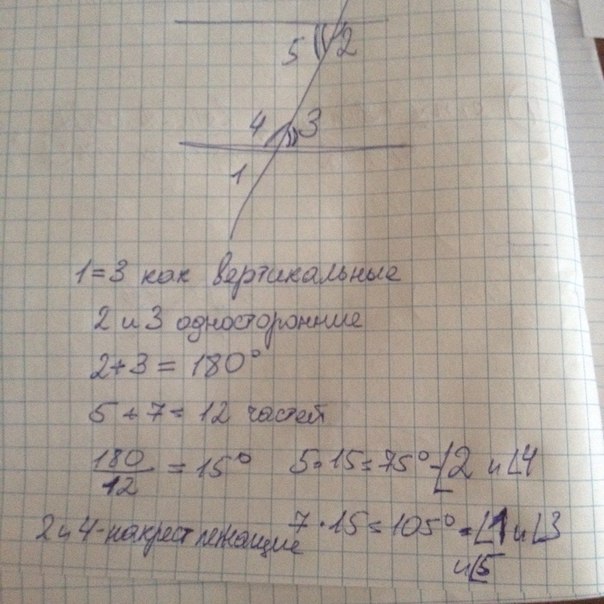 5 2
4 3
1
1=3 как вертикальные
2 и 3 односторонние
2+3 = 180°
5+7= 12 частей
180/12 = 15° 5·15=75° -∠2 и ∠4
2 и 4-накрест лежащие 7·15=105° =∠1 и ∠3
и ∠5